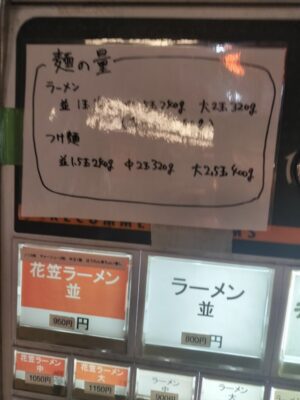 麺の量
ラーメン
並 1玉 1.5玉240g 大2玉320g
つけ麺
並1.5玉240g 中2玉320g 大2.5玉400g
花笠ラーメン
並
950円 円
ラーメン
並
800円 円
花笠ラーメン
中
1050円
花笠ラーメン
大
1150円
ラーメン
中
900円
ラーメン
大